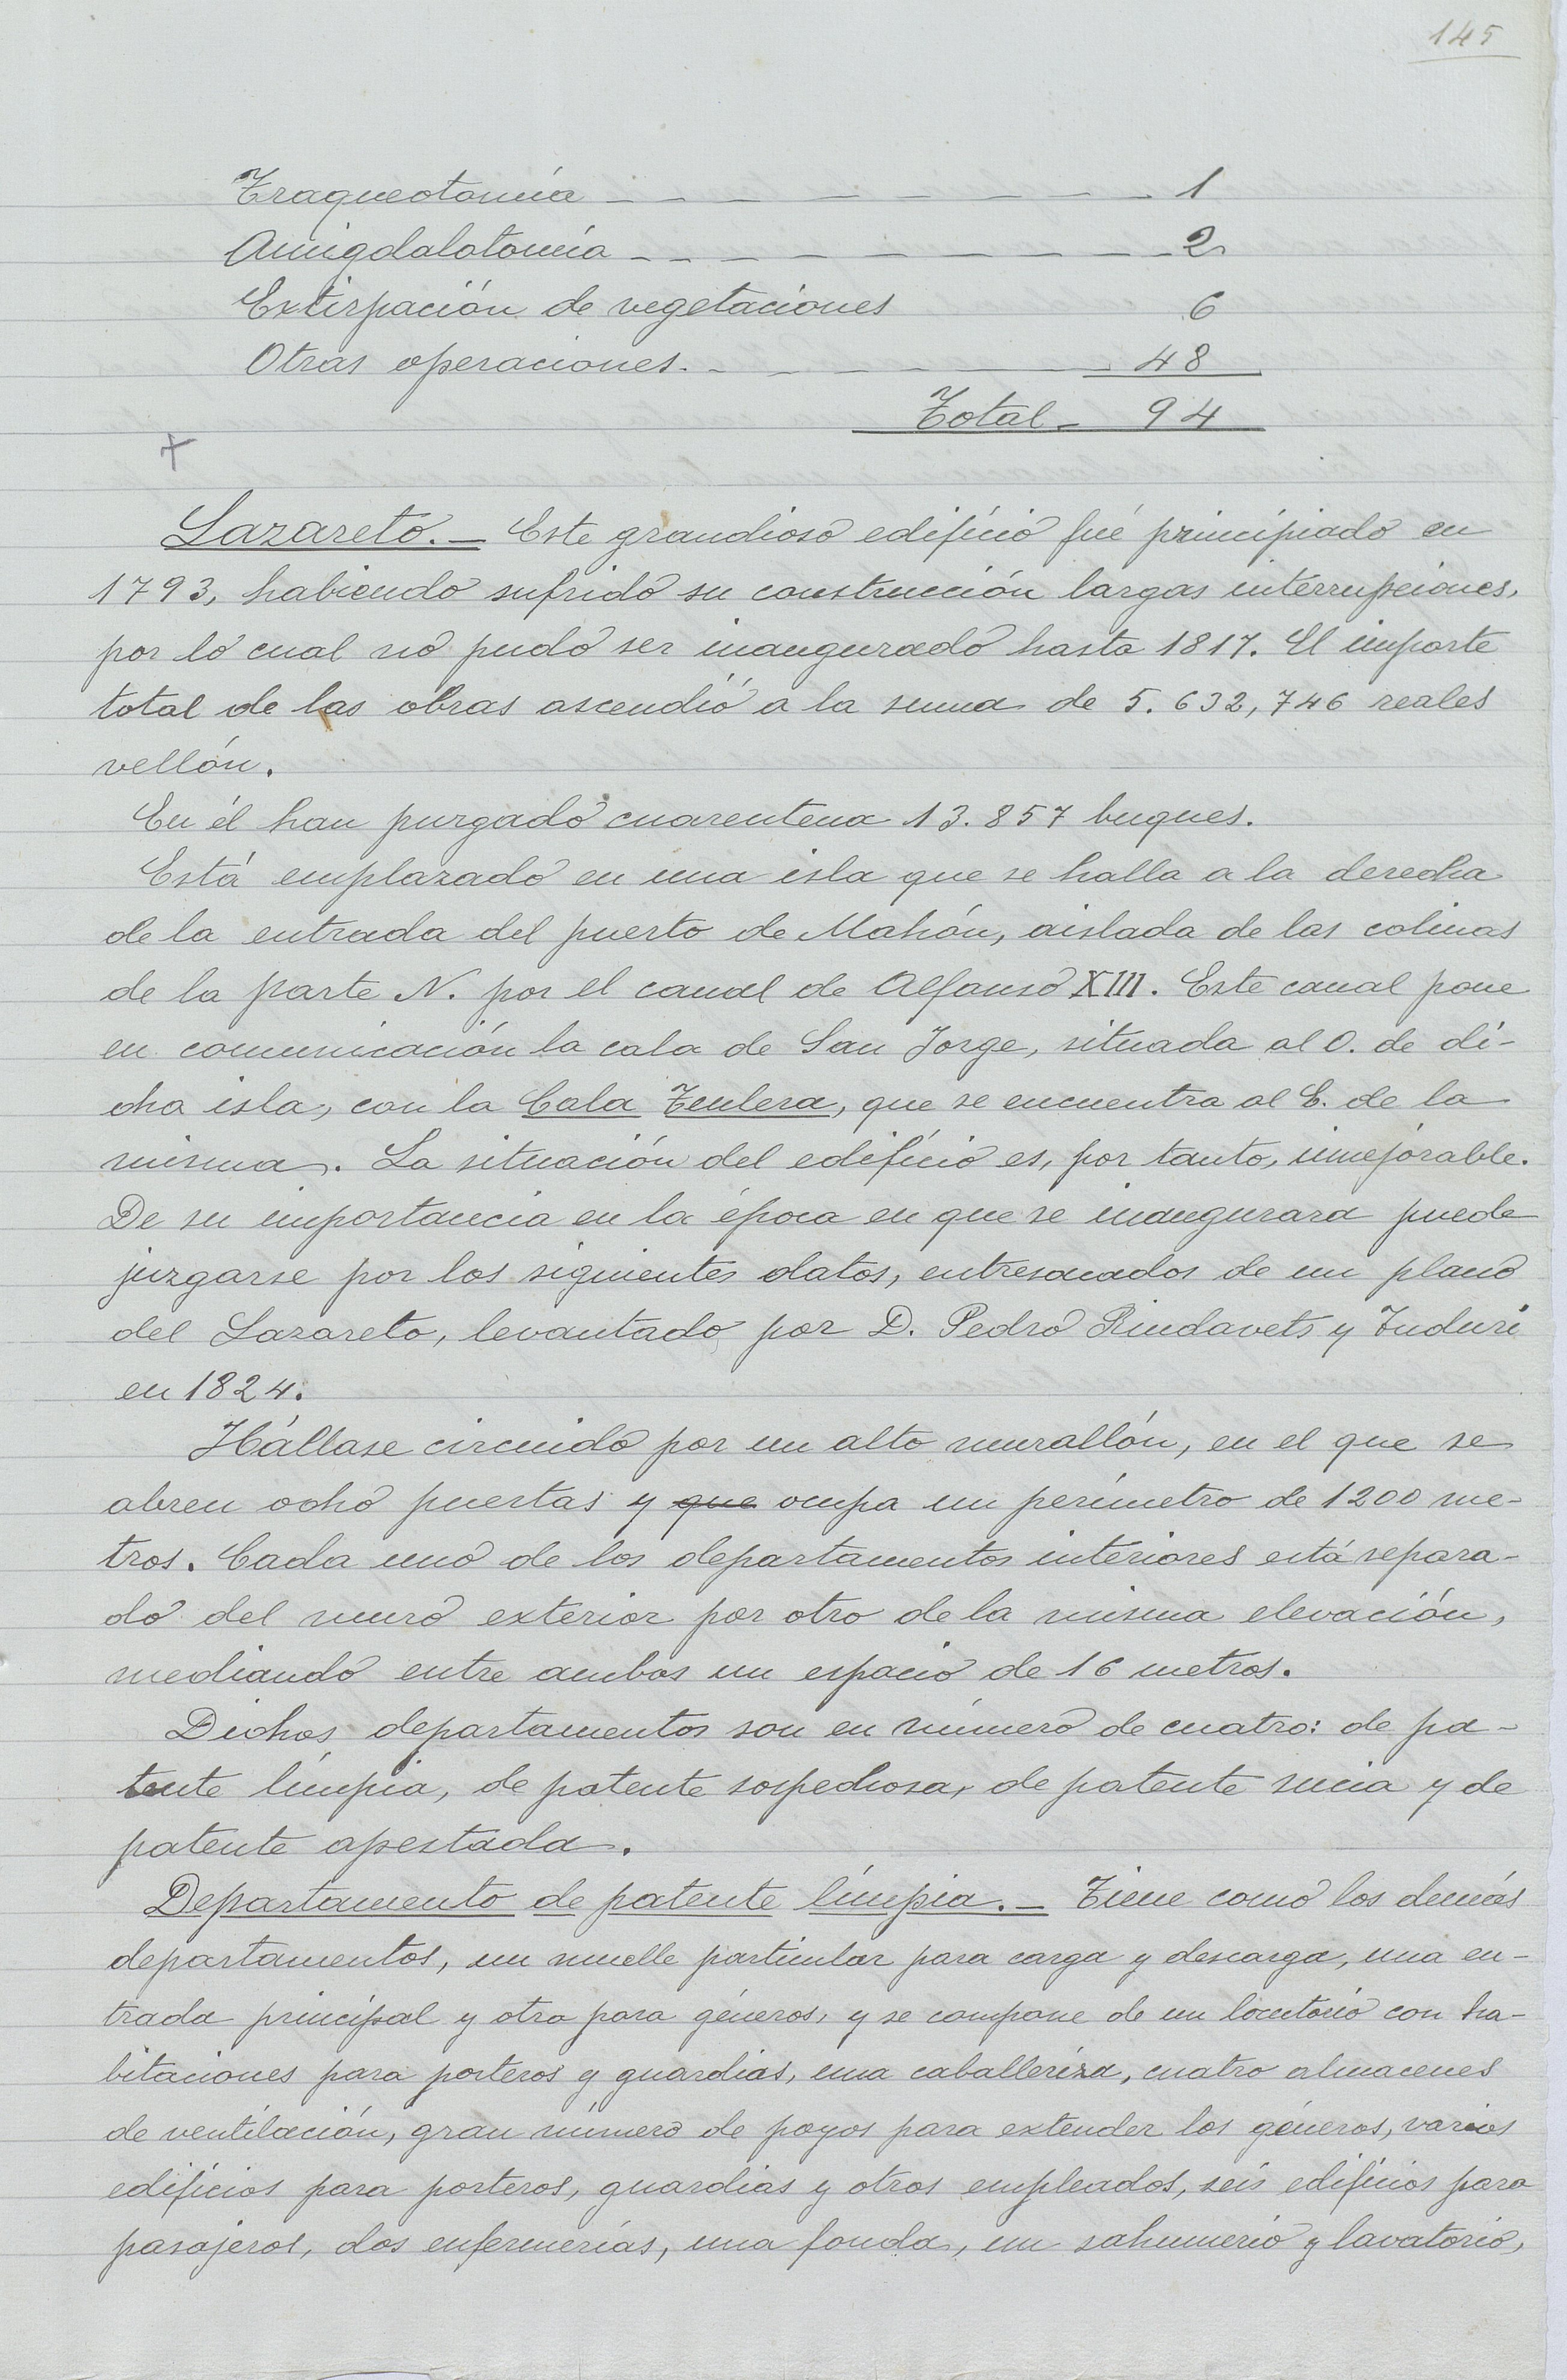 145
Traqueotomía - - - - - - - - - 1
Amigdalotomía - - - - - - - - - 2
Extirpación de vegetaciones 6
Otras operaciones. - - - - - - 48
Total - 94
+
Lazareto. - Este grandioso edificio fué principiado en
1793, habiendo sufrido su construcción largas interrupciones,
por lo cual no pudo ser inaugurado hasta 1817. El importe
total de las obras ascendió a la suma de 5.632,746 reales
vellón.
En él han purgado cuarentena 13.857 buques.
Está emplazado en una isla que se halla a la derecha
de la entrada del puerto de Mahón, aislada de las colinas
de la parte N. por el canal de Alfonso XIII. Este canal pone
en comunicación la cala de San Jorge, situada al O. de di-
cha isla, con la Cala Teulera, que se encuentra al E. de la
misma. La situación del edificio es, por tanto, inmejorable.
De su importancia en la época en que se inaugurara puede
juzgarse por los siguientes datos, entresacados de un plano
del Lazareto, levantado por D. Pedro Riudavets y Tudurí
en 1824.
Hállase circuido por un alto murallón, en el que se
abren ocho puertas y que ocupa un perímetro de 1200 me-
tros. Cada uno de los departamentos interiores está separa-
do del muro exterior por otro de la misma elevación,
mediando entre ambos un espacio de 16 metros.
Dichos departamentos son en número de cuatro: de pa-
tente límpia, de patente sospechosa, de patente sucia y de
patente apestada.
Departamento de patente límpia. - Tiene como los demás
departamentos, un muelle particular para carga y descarga, una en-
trada principal y otra para géneros, y se compone de un locutorio con ha-
bitaciones para porteros y guardias, una caballeriza, cuatro almacenes
de ventilación, gran número de poyos para extender los géneros, varios
edificios para porteros, guardias y otros empleados, seis edificios para
pasajeros, dos enfermerías, una fonda, un sahumerio y lavatorio,